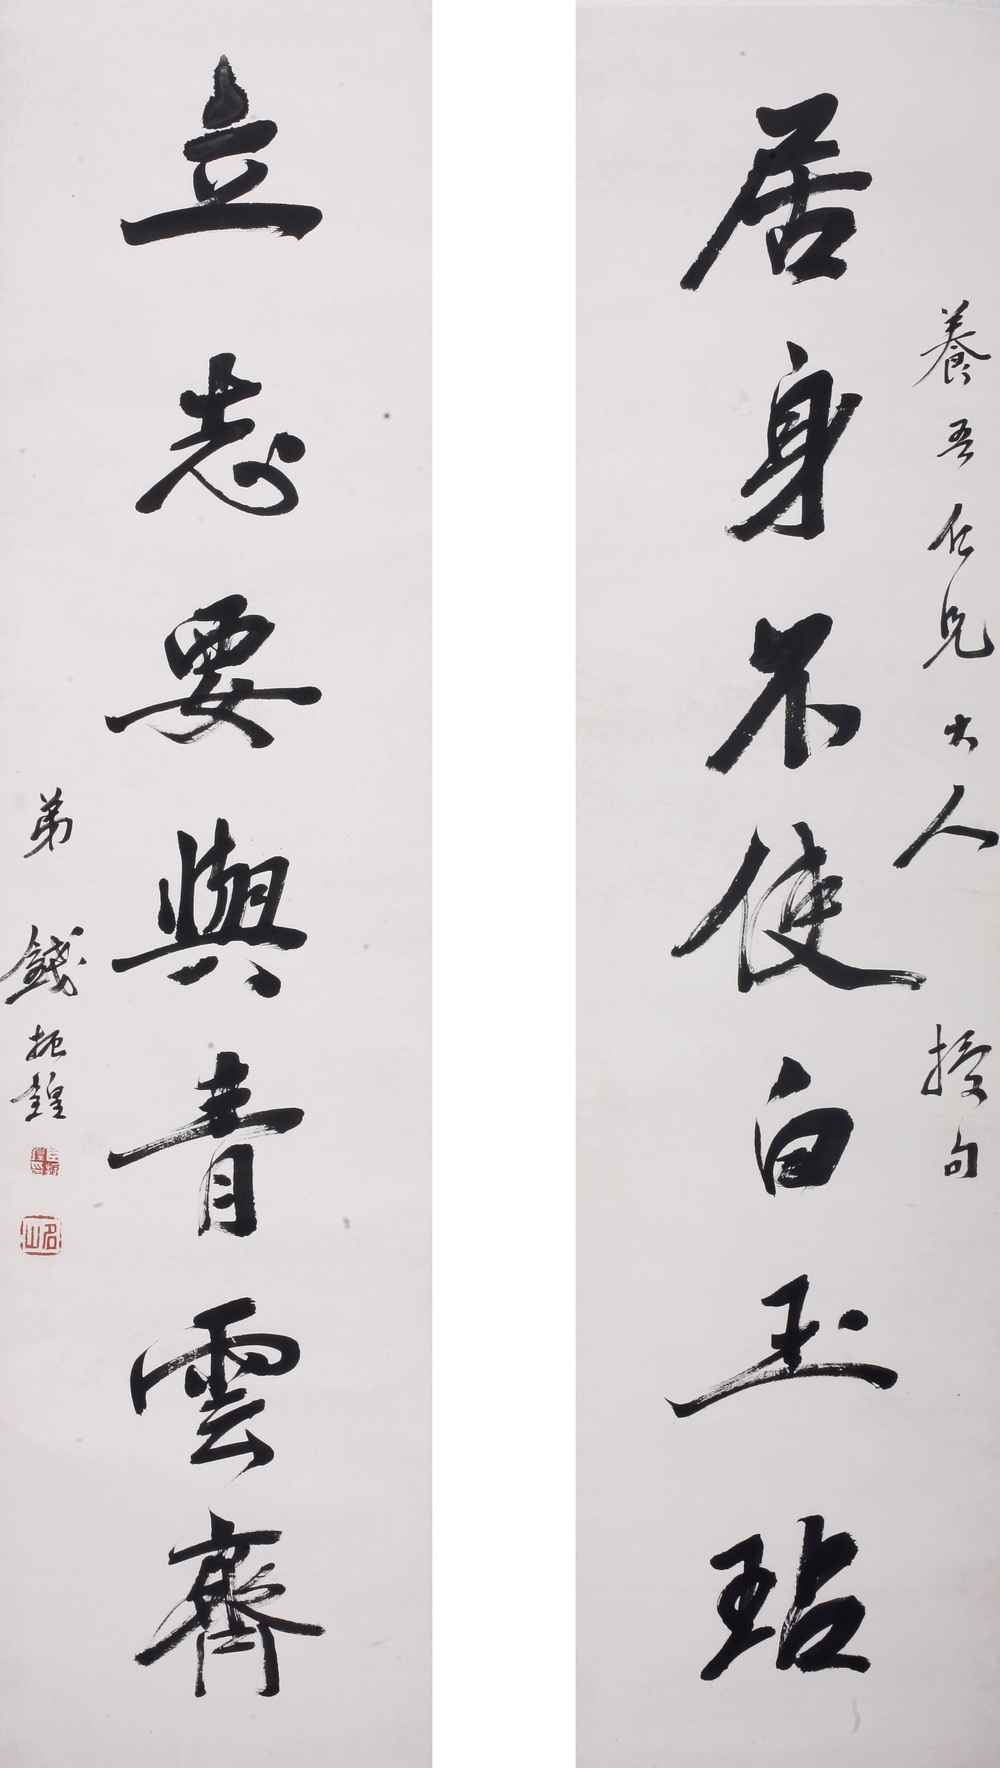 養吾仁兄大人 授句
居身不使白玉玷
立志要與青雲齊
弟 錢振鍠
名山